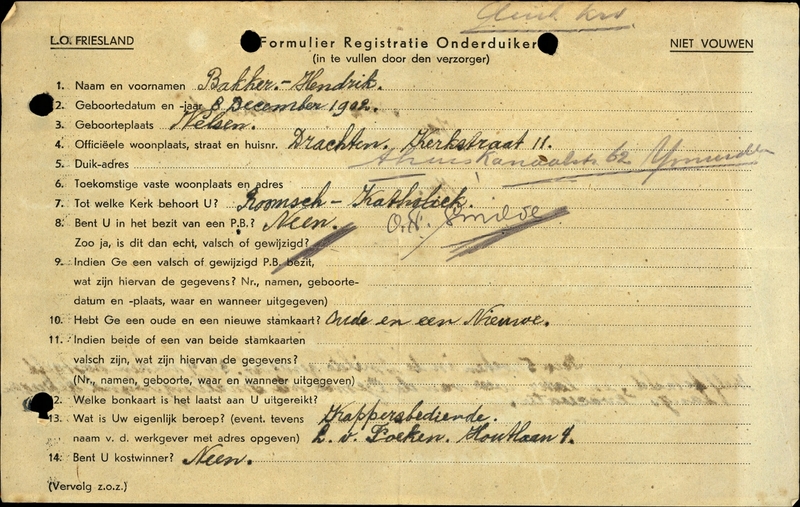 L.O. FRIESLAND
Formulier Registratie Onderduiker
NIET VOUWEN
(in te vullen door den verzorger)
1. Naam en voornamen Bakker.- Hendrik.
2. Geboortedatum en -jaar 8 December 1902.
3. Geboorteplaats Velsen.
4. Officiëele woonplaats, straat en huisnr. Drachten. Kerkstraat 11.
5. Duik-adres thuis Kanaalstr 62 Ymuiden
6. Toekomstige vaste woonplaats en adres
7. Tot welke Kerk behoort U? Roomsch-Katholiek.
8. Bent U in het bezit van een P.B.? Neen. Smilde
Zoo ja, is dit dan echt, valsch of gewijzigd?
9. Indien Ge een valsch of gewijzigd P.B. bezit,
wat zijn hiervan de gegevens? Nr., namen, geboorte-
datum en -plaats, waar en wanneer uitgegeven)
10. Hebt Ge een oude en een nieuwe stamkaart? Oude en een Nieuwe.
11. Indien beide of een van beide stamkaarten
valsch zijn, wat zijn hiervan de gegevens?
(Nr., namen, geboorte, waar en wanneer uitgegeven)
2. Welke bonkaart is het laatst aan U uitgereikt?
13. Wat is Uw eigenlijk beroep? (event. tevens Kappersbediende.
naam v. d. werkgever met adres opgeven) Houtlaan 4.
14. Bent U kostwinner? Neen.
(Vervolg z.o.z.)